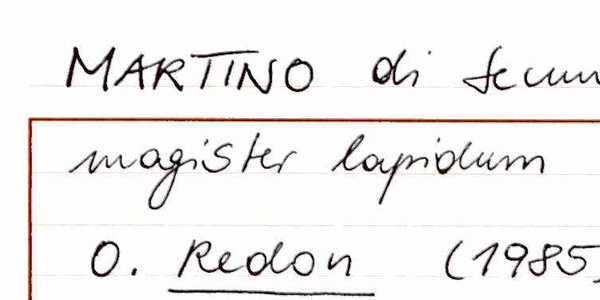 MARTINO di
magister lapidum
O. Redon (1985